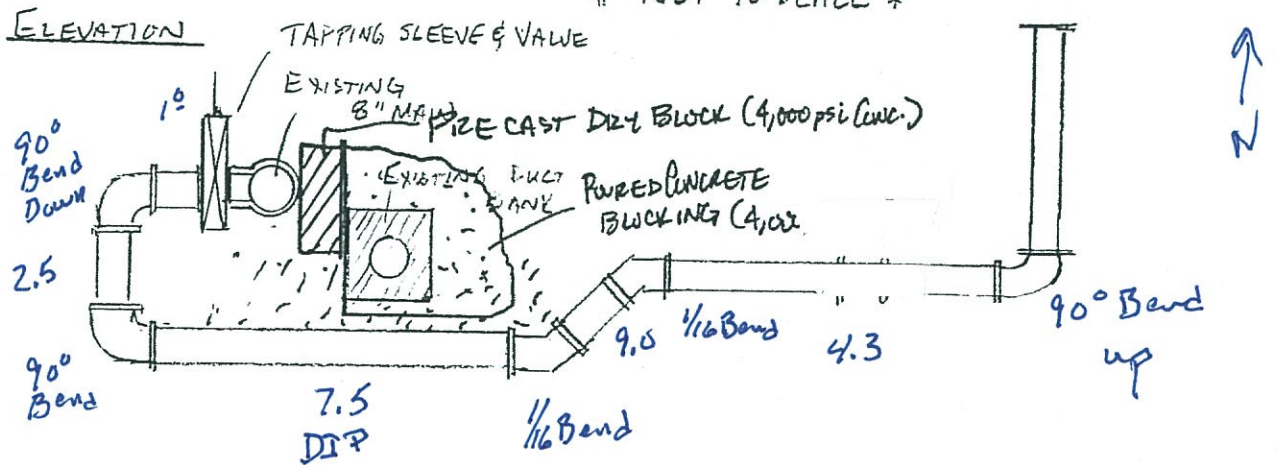 ELEVATION
TAPPING SLEEVE & VALVE
EXISTING
8" MAIN
PRE CAST DRY BLOCK (4,000 psi Conc.)
EXISTING DUCT
BANK
POURED CONCRETE
BLOCKING (4,000
90°
Bend
Down
2.5
90°
Bend
7.5
DIP
1/16 Bend
1/16 Bend
4.3
90° Bend
up
N